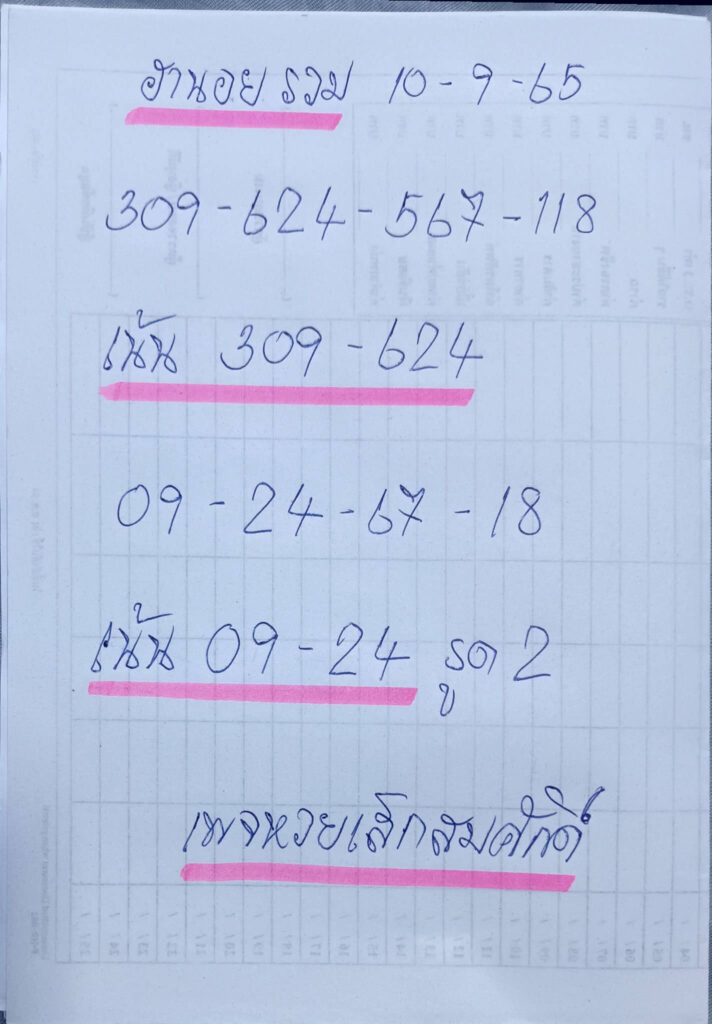 ฮานอย รวม 10-9-65
309-624-567-118
เน้น 309-624
09-24-67-18
เน้น 09-24 รูด 2
เพจหวยเสี่กสมศักดิ์